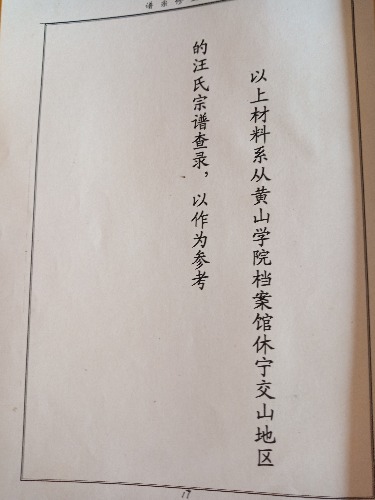 以上材料系从黄山学院档案馆休宁交山地区
的汪氏宗谱查录，以作为参考
17